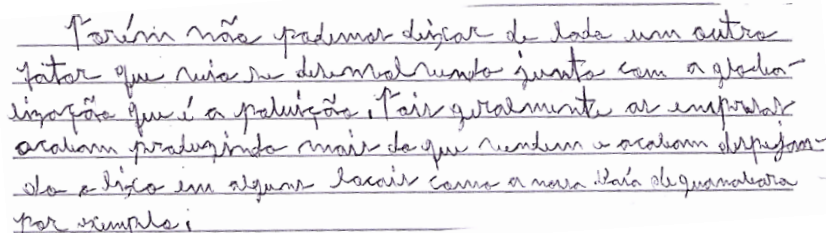 Porém não podemos deixar de lado um outro
fator que veio se desenvolvendo junto com a globa-
lização que é a poluição. Pois geralmente as empresas
acabam produzindo mais do que vendem e acabam despejan-
do o lixo em alguns locais como a nossa Baía de guanabara
por exemplo.